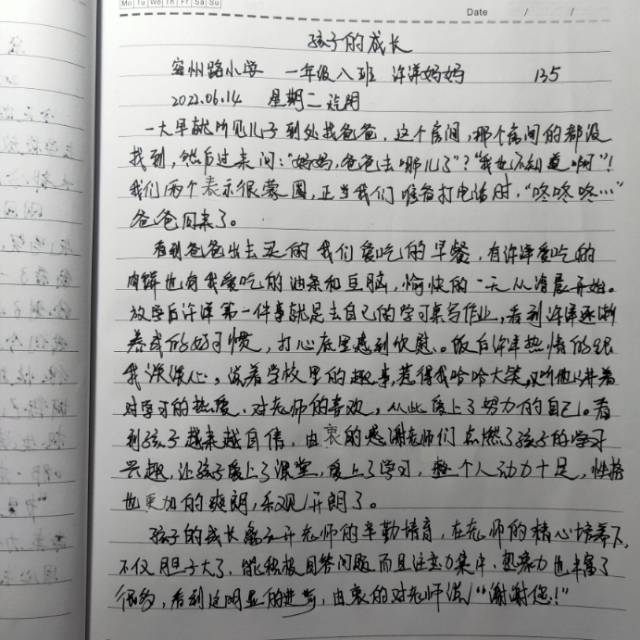 Mo Tu We Th Fr Sa Su
Date / /
孩子的成长
宿州路小学 一年级八班 许洋妈妈 135
2022.06.14 星期二 晴
一大早就听见儿子到处找爸爸，这个房间，那个房间的都没
找到，然后过来问：“妈妈，爸爸去哪儿了”？“我也不知道啊”！
我们两个表示很蒙圈，正当我们准备打电话时，“咚咚咚…”
爸爸回来了。
看到爸爸出去买的我们爱吃的早餐，有许洋爱吃的
也有我爱吃的油条和豆脑，愉快的一天从清晨开始。
放学后许洋第一件事就是去自己的学习桌写作业，看到许洋逐渐
养成的好习惯，打心底里感到欣慰。饭后许洋热情的跟
我谈谈心，说着学校里的趣事，惹得我哈哈大笑，又听他讲着
对学习的热度，对老师的喜欢，从此爱上了努力的自己。看
到孩子越来越自信，由衷的感谢老师们点燃了孩子的学习
兴趣，让孩子爱上了课堂，爱上了学习，整个人动力十足，性格
也更加的爽朗，乐观开朗了。
孩子的成长离不开老师的辛勤培育，在老师的精心培养下，
不仅胆子大了，能积极回答问题而且注意力集中，想象力也丰富了
很多，看到这明显的进步，由衷的对老师说“谢谢您！”